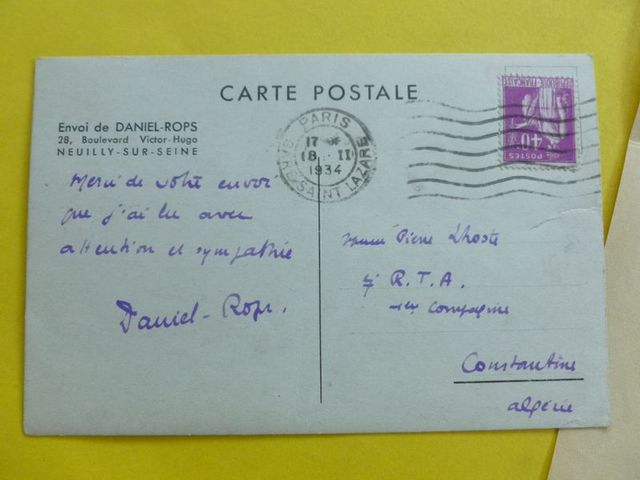 CARTE POSTALE
Envoi de DANIEL-ROPS
28, Boulevard Victor-Hugo
NEUILLY-SUR-SEINE
Merci de votre envoi
que j'ai lu avec
attention et sympathie
Daniel-Rops.
PARIS
17
18 II
1934
GARE SAINT-LAZARE
POSTES
40
Pierre Lhoste
R.T.A.
Compagnie
Constantine
Algérie